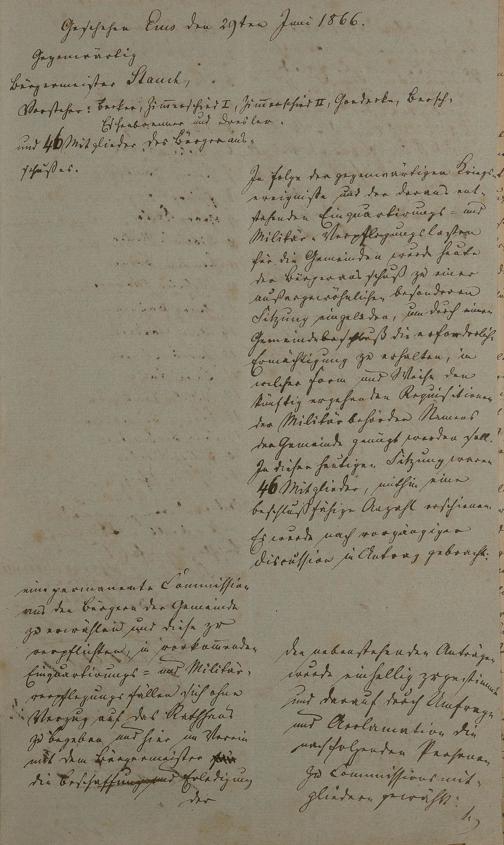 Geschehen Ems den 29ten Juni 1866.
Gegenwärtig
Bürgermeister Stauch,
Vorsteher: Becker, Zimmerschied I, Zimmerschied II, Goedecke, Bersch,
Eisenbrenner und Dresler.
und 46 Mitglieder des Bürgeraus-
schußes.
In Folge der gegenwärtigen Kriegs-
ereigniße und der daraus ent-
stehenden Einquartierungs- und
Militär-Verpflegungslasten
für die Gemeinden wurde heute
der Bürgerausschuß zu einer
außergewöhnlichen besonderen
Sitzung eingeladen, um durch einen
Gemeindebeschluß die erforderliche
Ermächtigung zu erhalten, in
welcher Form und Weise den
künftig ergehenden Requisitionen
der Militärbehörden Namens
der Gemeinde genügt werden soll.
In dieser heutigen Sitzung waren
46 Mitglieder, mithin eine
beschlußfähige Anzahl erschienen.
Es wurde nach vorgängiger
Discussion in Antrag gebracht:
eine permanente Commission
aus den Bürgern der Gemeinde
zu erwählen und diese zu
verpflichten, in vorkommenden
Einquartierungs- und Militär-
verpflegungsfällen sich ohne
Verzug auf das Rathhaus
zu begeben und hier im Verein
mit dem Bürgermeister für
die Beschaffung und Erledigung
der
den nebenstehenden Anträgen
wurde einhellig zugestimmt
und darauf durch Umfrage
und Acclamation die
nachfolgenden Personen
zu Commissionsmit-
gliedern gewählt: